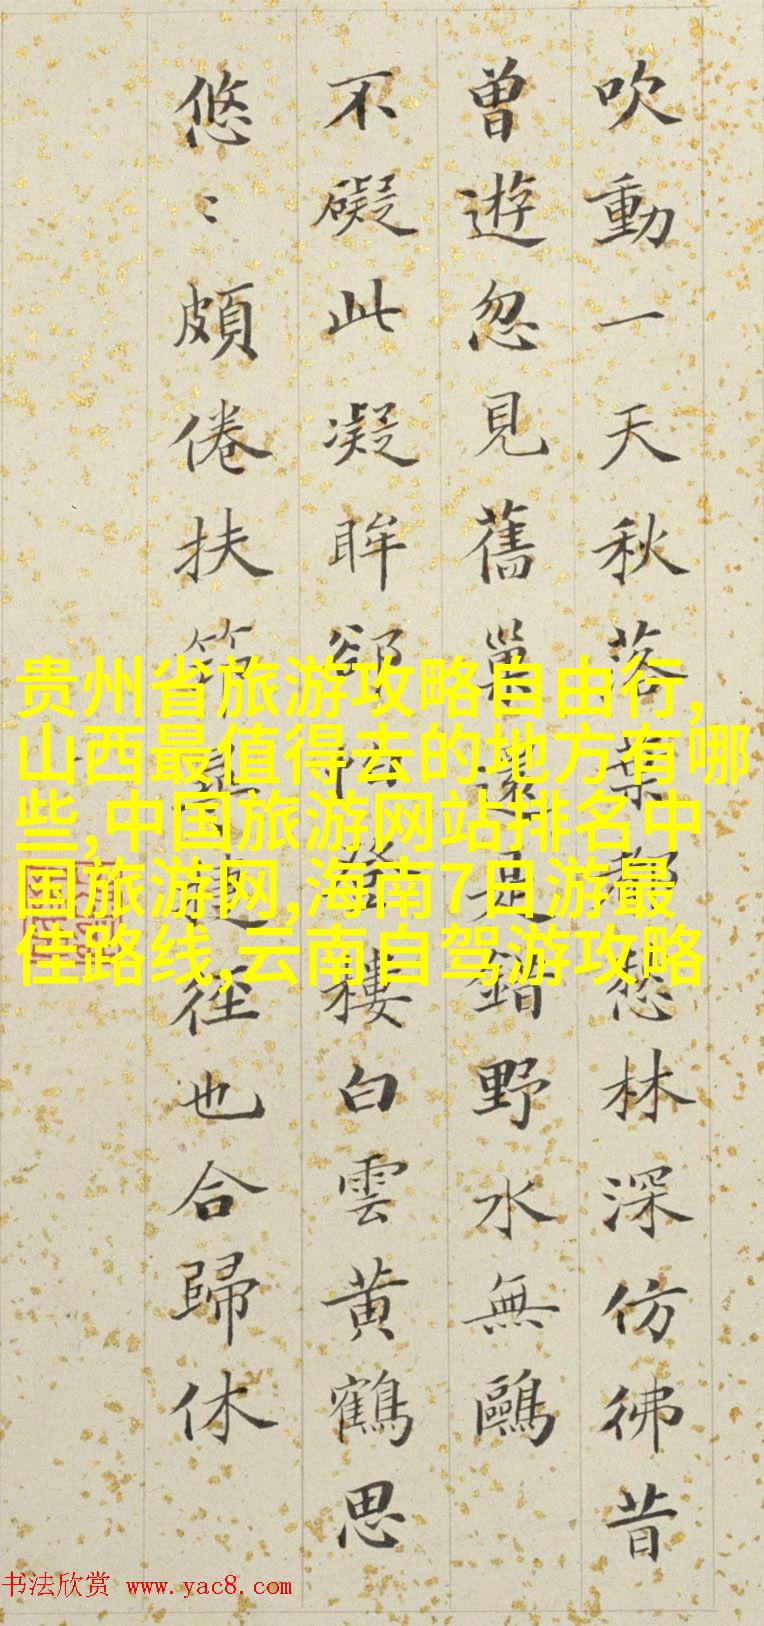 吹動一天秋落葉都愁林深仿彿昔
曾遊忽見舊巢還是錯野水無鷗
不礙此凝眸卻怕登樓白雲黃鶴思
悠〻頗倦扶筇尋捷徑也合歸休
贵州省旅游攻略自由行,
山西最值得去的地方有哪
些,中国旅游网站排名中
国旅游网,海南7日游最
佳路线,云南自驾游攻略
书法欣赏 www.yac8.com